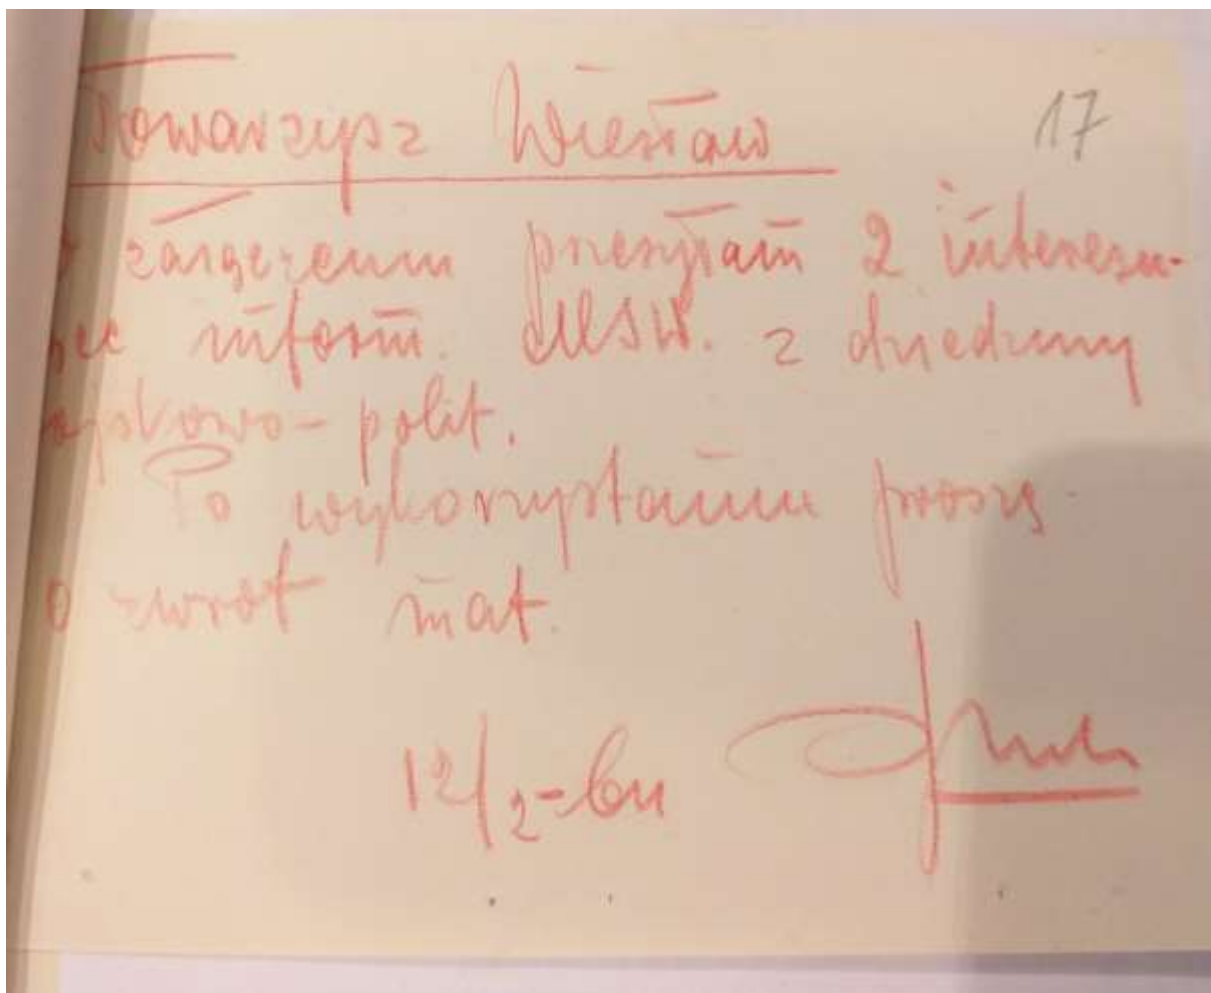 Towarzysz Wiesław 17
załączeniu przesyłam 2 interesu-
jące inform. MSW. z dziedziny
wojskowo-polit.
Po wykorzystaniu proszę
o zwrot mat.
12/2-bm